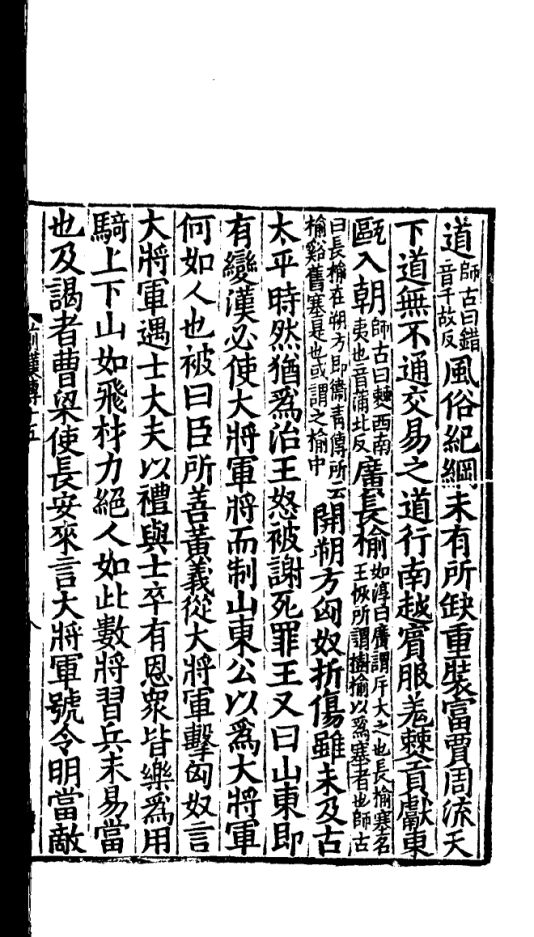 道師古曰錯音千故反風俗紀綱未有所缺重裝富賈周流天
下道無不通交易之道行南越賔服羌僰貢獻東
甌入朝師古曰僰西南夷也音蒲北反廣長榆如淳曰廣謂斥大之也長榆塞名王恢所謂樹榆以爲塞者也師古
曰長榆在朔方即衞青傳所云榆谿舊塞是也或謂之榆中開朔方匈奴折傷雖未及古
太平時然猶爲治王怒被謝死罪王又曰山東即
有變漢必使大將軍將而制山東公以爲大將軍
何如人也被曰臣所善黃義從大將軍擊匈奴言
大將軍遇士大夫以禮與士卒有恩衆皆樂爲用
騎上下山如飛材力絕人如此數將習兵未易當
也及謁者曹梁使長安來言大將軍號令明當敵
前漢傳十五
八